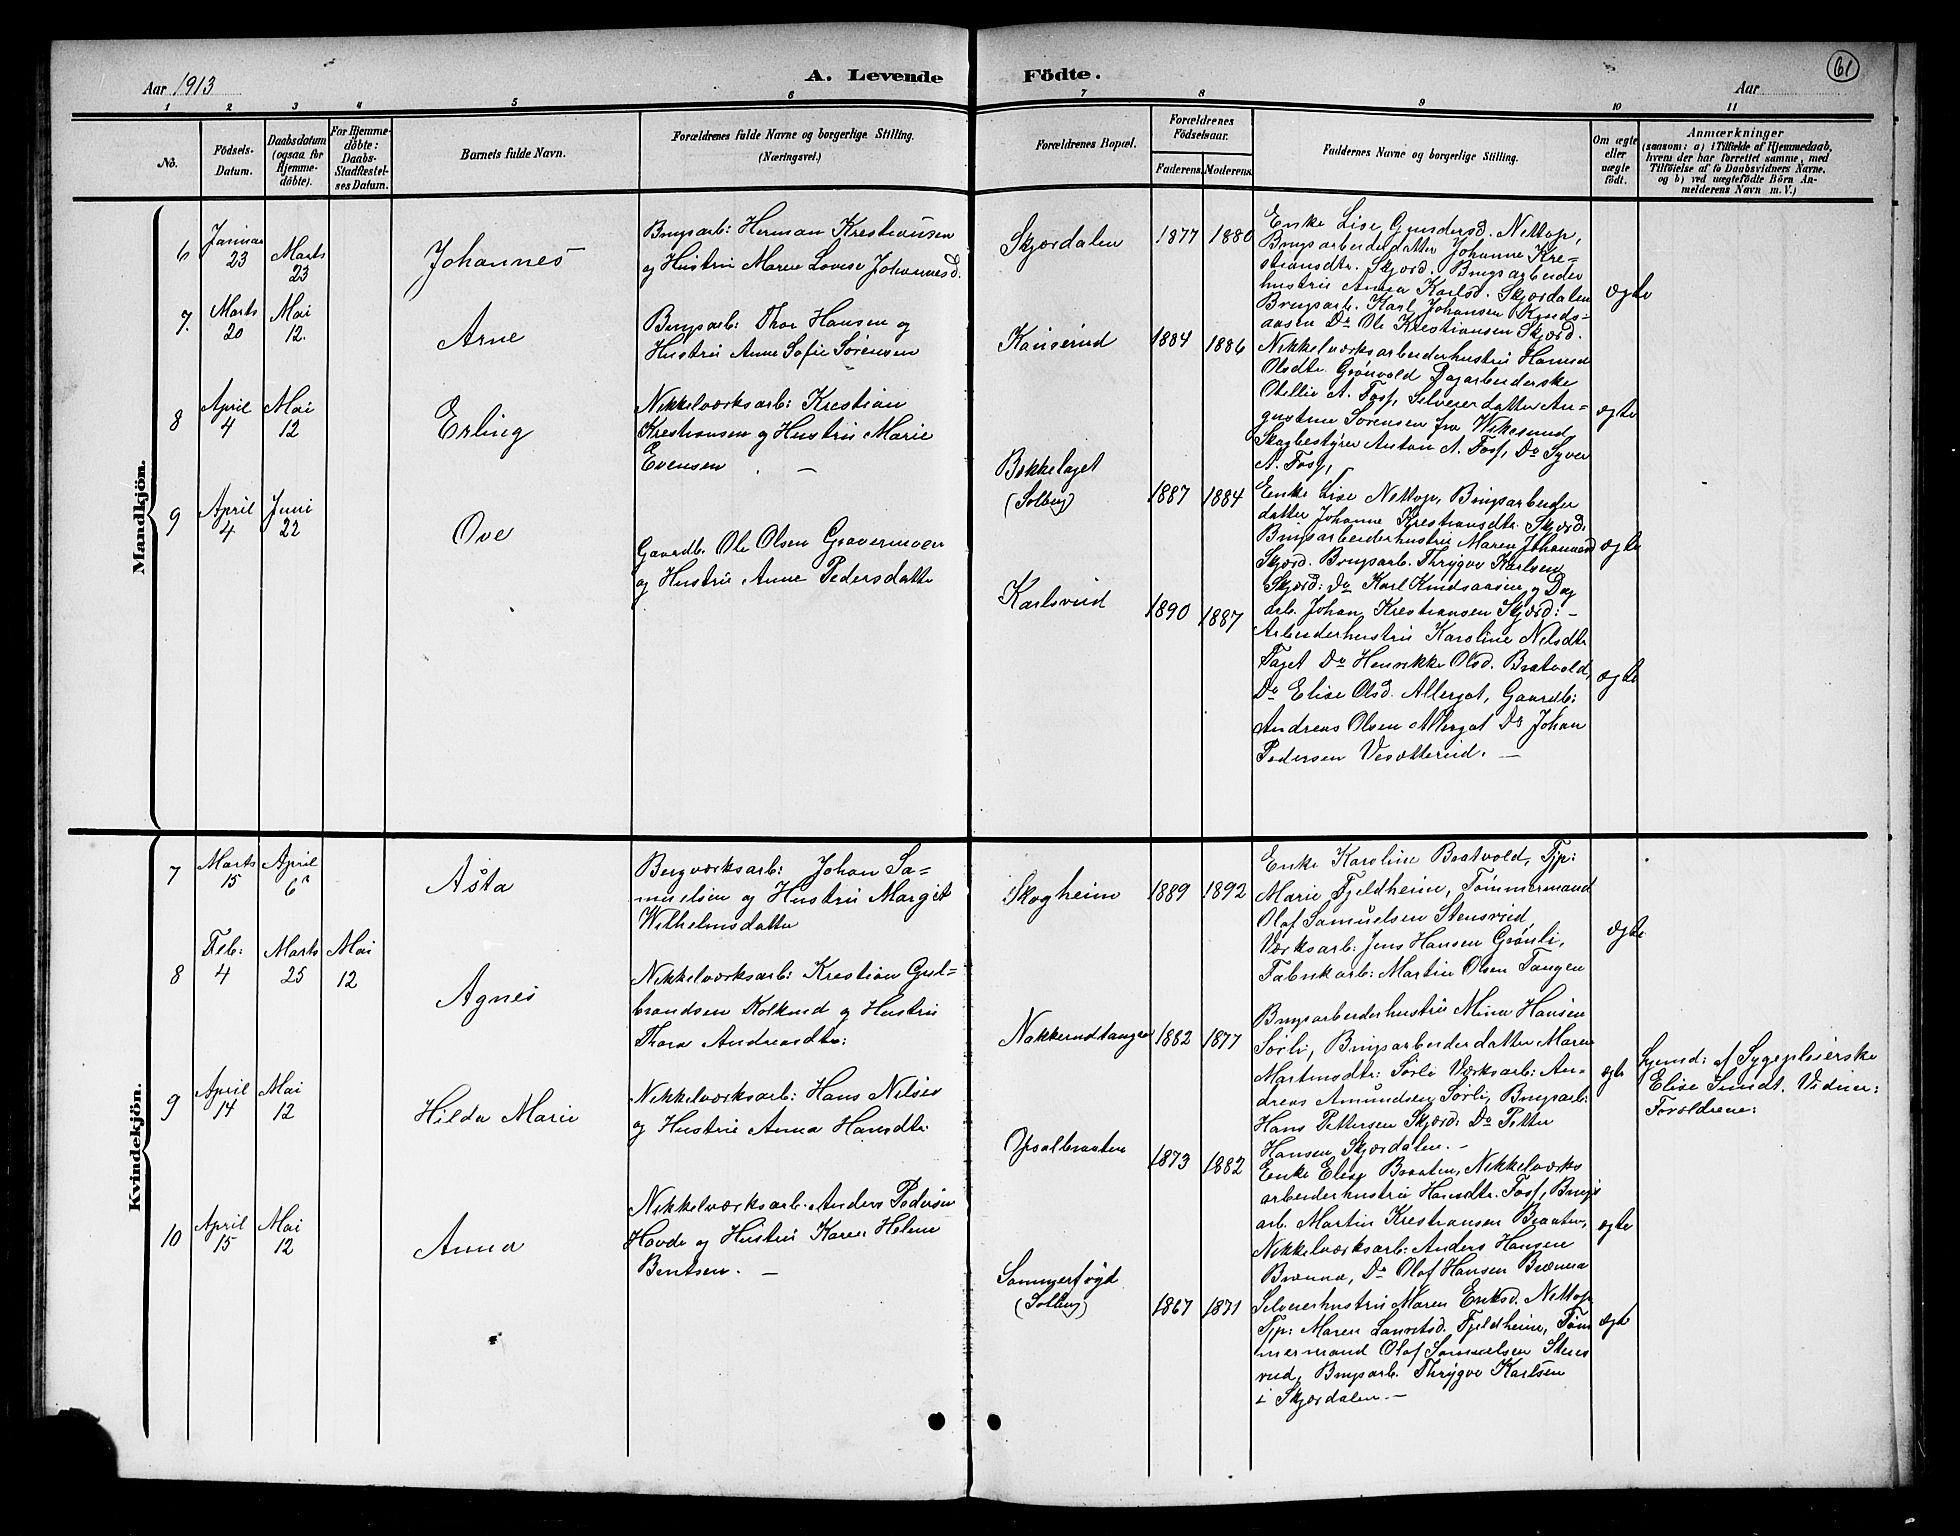 Aar 1913
A. Levende Födte.
Aar
61
1 2 3 4 5 6 7 8 9 10 11
No.
Födsels-
Datum.
Daabsdatum
(ogsaa for
Hjemme-
döbte).
For Hjemme-
döbte:
Daabs-
Stadfæstel-
ses Datum.
Barnets fulde Navn.
Forældrenes fulde Navne og borgerlige Stilling.
(Næringsvei.)
Forældrenes Bopæl.
Forældrenes
Födselsaar.
Faderens. Moderens.
Faddernes Navne og borgerlige Stilling.
Om ægte
eller
uægte
födt.
Anmærkninger
(saasom: a) i Tilfælde af Hjemmedaab,
hvem der har forrettet samme, med
Tilföielse af to Daabsvidners Navne,
og b) ved uægtefödte Börn An-
melderens Navn m. V.)
Mandkjön.
6
Januar
23
Marts
23
Johannes
Brugsarb: Herman Krestiansen
og Hustru Maren Lovise Johannesd.
Skjærdalen
1877 1880
Enke Lise Gundersd. Nettop,
Brugsarbeiderdatter Johanne Kre-
stiansdtr. Skjærd. Brugsarbeider
hustru Anna Karlsd. Skjærdalen
Brugsarb. Karl Johansen Knuds-
aasen Do Ole Krestiansen Skjærd.
ægte
7.
Marts
20
Mai
12.
Arne
Brugsarb: Thor Hansen og
Hustru Anne Sofie Sørensen
1884 1886
Nikkelværksarbeiderhustru
Olsdtr. Grønvold Dagarbeiderske
Otellie A. Foss, Selveierdatter Au-
gustine Sørensen fra Vikesund,
Skogbestyrer Anton A. Foss, Do Syver
A. Foss,
ægte
8
April
4
Mai
12
Erling
Nikkelværksarb: Krestian
Krestiansen og Hustru Marie
Evensen —
Bekkelaget
(Solberg)
1887 1884
Enke Lise Nettop, Brugsarbeider
datter Johanne Krestiansdtr. Skjærd.
Brugsarbeiderhustru Maren Johannesd
Skjærd. Brugsarb. Thrygve Karlsen
Skjærd: Do Karl Knudsaasen, og Dag
arb. Johan Krestiansen Skjærd: —
ægte
9
April
4
Juni
22
Ove
Gaardb. Ole Olsen Gravermoen
og Hustru Anne Pedersdatter
Karlsrud
1890 1887
Arbeiderhustru Karoline Nilsdtr
Faget Do Henrikke Olsd. Bratvold,
Do Elise Olsd. Allergot, Gaardb:
Andreas Olsen Allergot Do Johan
Pedersen Vesætterud. —
ægte
Kvindekjön.
7
Marts
15
April
6
Åsta
Bergværksarb: Johan Sa-
muelsen og Hustru Margit
Wilhelmsdatter
Skogheim
1889 1892
Enke Karoline Bratvold, Tjp:
Marie Fjeldheim, Tømmermand
Olaf Samuelsen Stensrud,
Værksarb: Jens Hansen Grønli,
Fabrikarb: Martin Olsen Tangen
ægte
8
Feb:
4
Marts
25
Mai
12
Agnes
Nikkelværksarb: Krestian Gul-
brandsen Kolkind og Hustru
Thora Andreasdtr:
Nakkerudtangen
1882 1877
Brugsarbeiderhustru Mina Hansen
Sørli, Brugsarbeiderdatter Maren
Martinsdtr: Sørli Værksarb: An-
dreas Amundsen Sørli, Brugsarb:
Hans Pettersen Skjærd: Do Petter
Hansen, Skjærdalen. —
ægte
Hjemd: af Sygepleierske
Elise Smidt. Vidner:
Forældrene:
9
April
14
Mai
12
Hilda Marie
Nikkelværksarb: Hans Nilsen
og Hustru Anna Hansdtr.
Opsalbraaten
1873 1882
Enke Elise Braaten, Nikkelværks
arbeiderhustru Hansdtr. Foss, Brugs
arb. Martin Krestiansen Braaten,
Nikkelværksarb: Anders Hansen
Brænna, Do Olaf Hansen Brænna
ægte
10
April
15
Mai
12
Anna
Nikkelværksarb. Anders Pedersen
Hovde og Hustru Karen Helene
Bentsen. —
Sommerføyd
(Solberg)
1867 1871
Selveierhustru Maren Eriksd. Nettop
Tjp: Maren Lauritsd. Fjeldheim, Tøm
mermand Olaf Samuelsen Stens
rud, Brugsarb. Thrygve Karlsen
i Skjærdalen. —
ægte